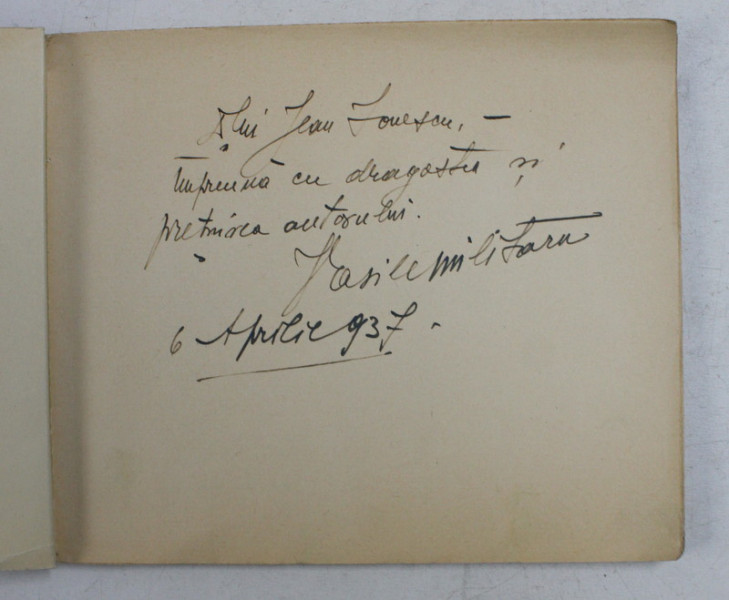 D̦lui Jean Ionescu, —
Împreună cu dragostea și
prețuirea autorului.
Vasile Militaru
6 Aprilie 937.